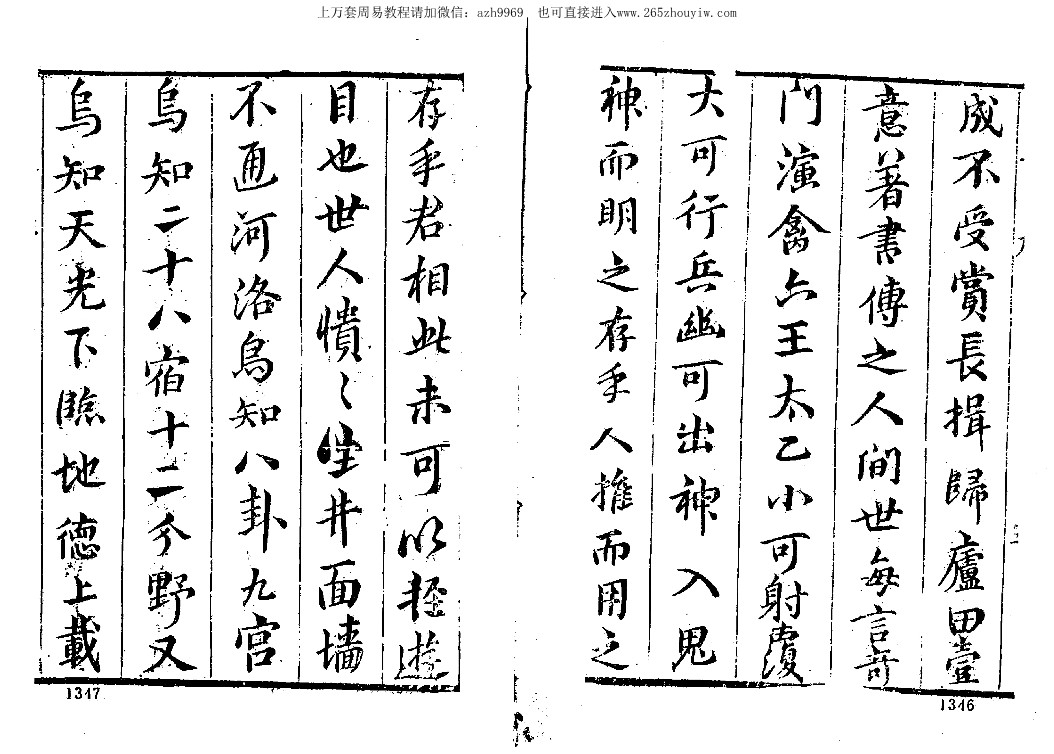 上万套周易教程请加微信：azh9969　也可直接进入www.265zhouyiw.com
成不受賞長揖歸廬田壹
意著書傳之人間世每言奇
門演禽六王太乙小可射覆
大可行兵幽可出神入鬼
神而明之存乎人推而用之
1346
存乎君相此未可以輕遊
目也世人憒〻坐井面墻
不通河洛烏知八卦九宮
烏知二十八宿十二分野又
烏知天光下臨地德上載
1317